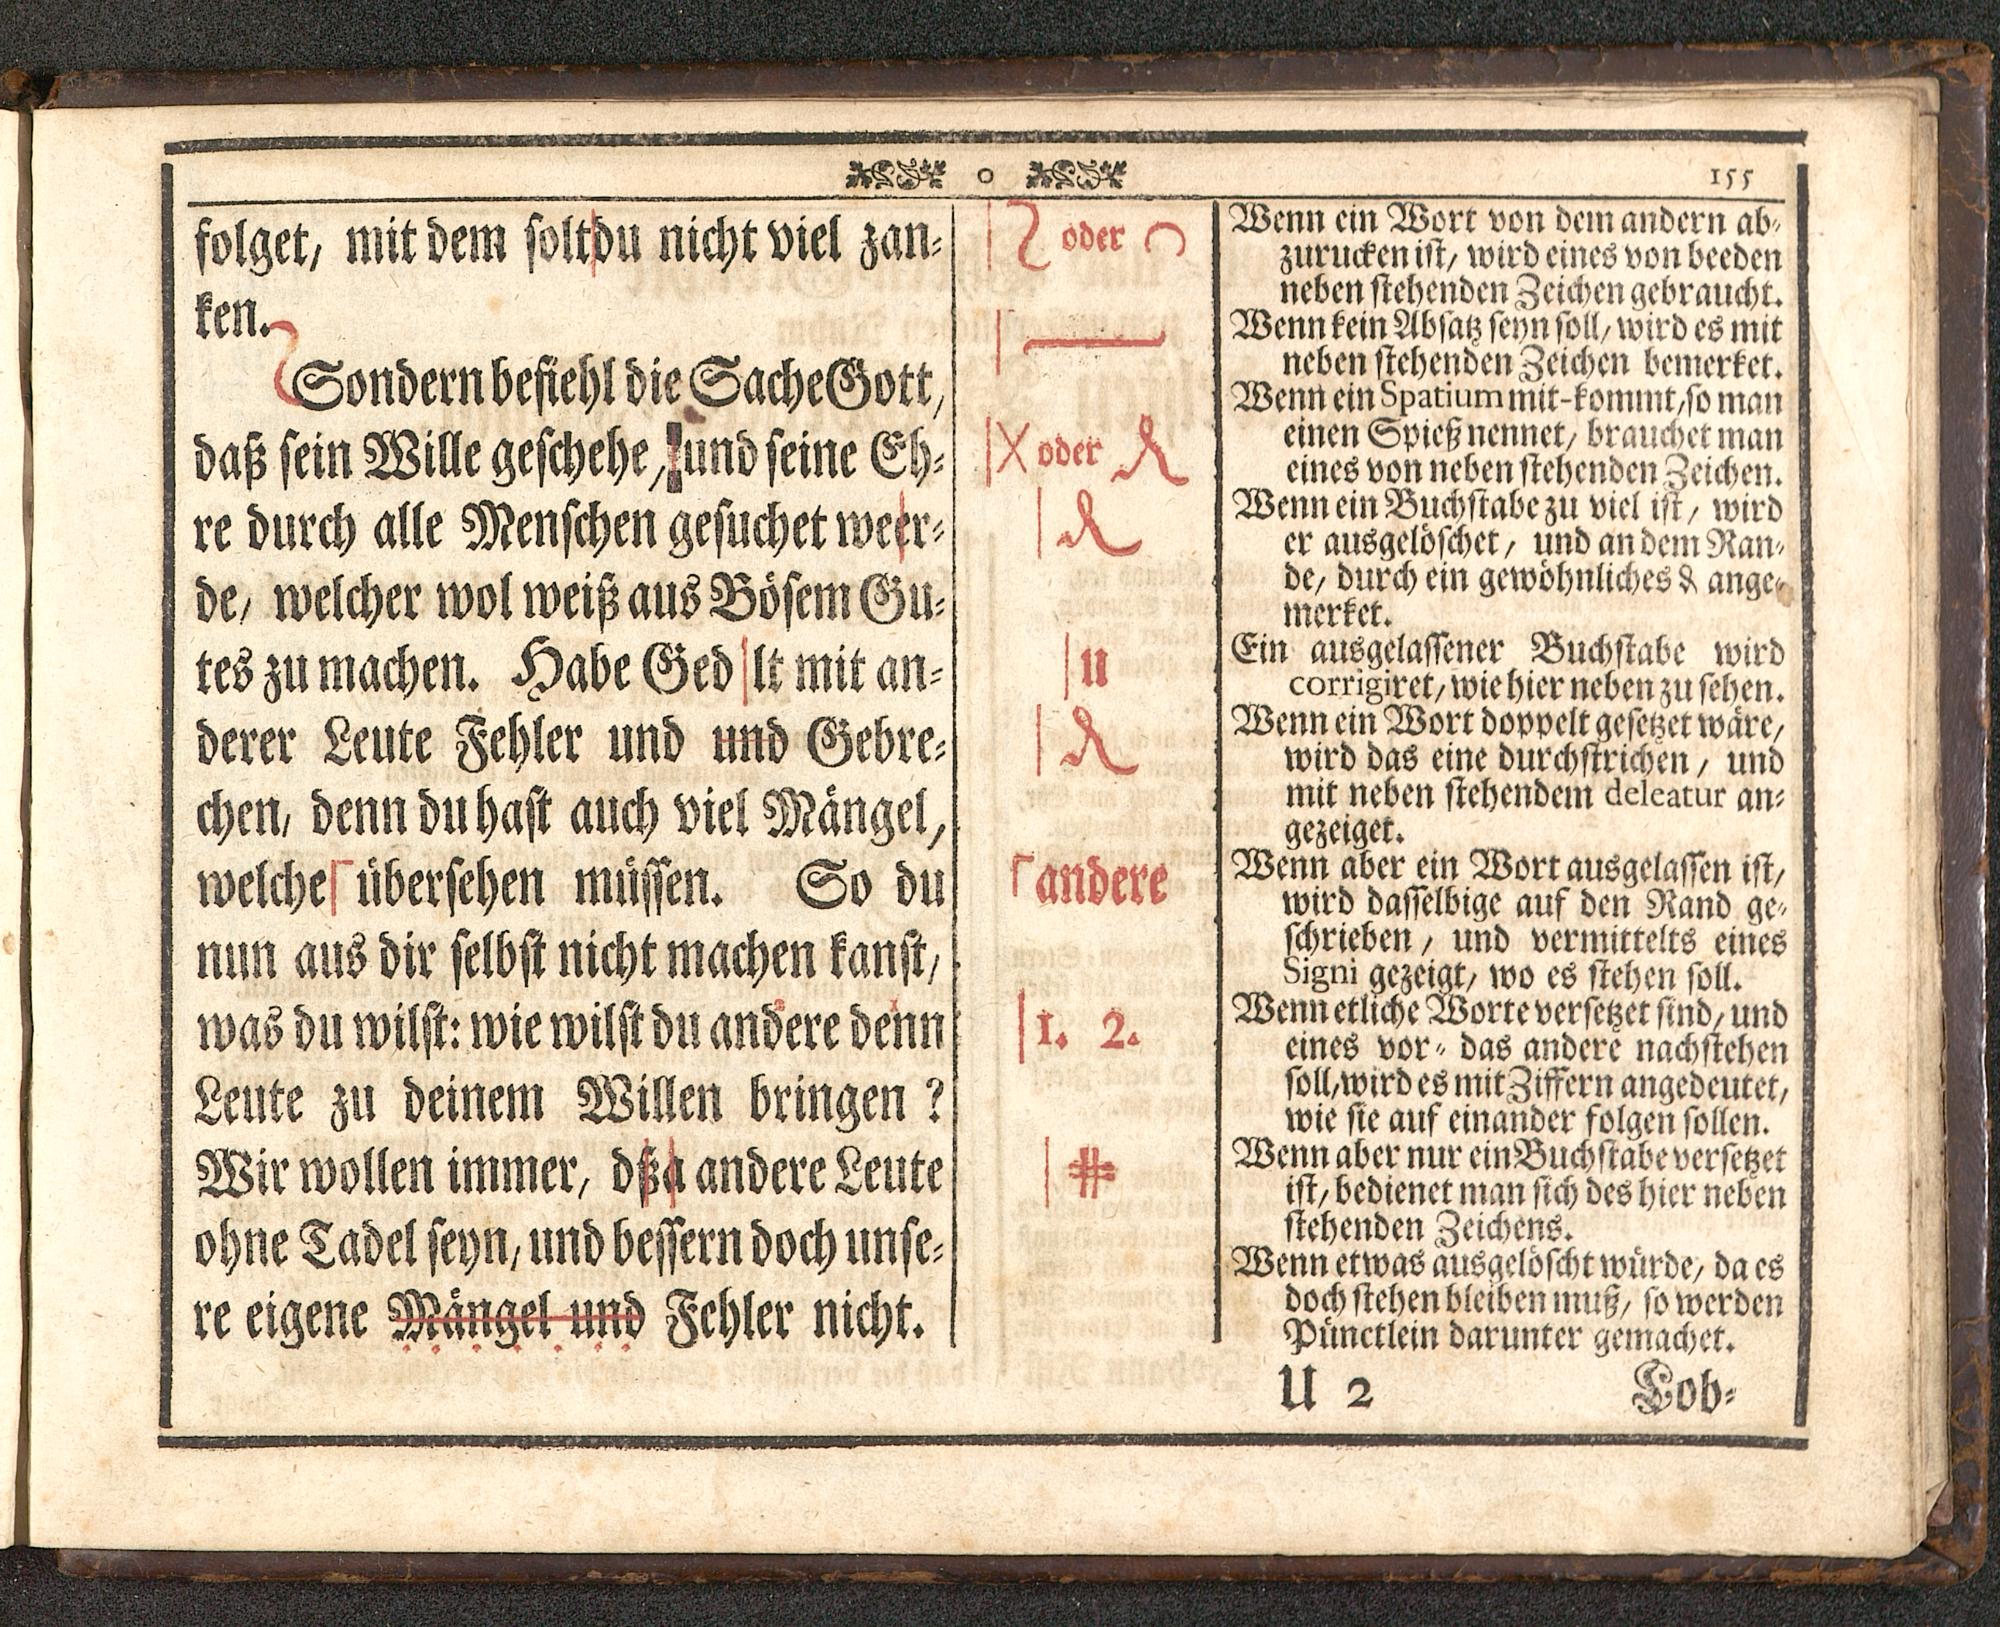 155
folget, mit dem soltdu nicht viel zan⸗
ken.
Sondern befiehl die Sache Gott,
daß sein Wille geschehe, und seine Eh⸗
re durch alle Menschen gesuchet weer⸗
de, welcher wol weiß aus Bösem Gu⸗
tes zu machen. Habe Ged lt mit an⸗
derer Leute Fehler und und Gebre⸗
chen, denn du hast auch viel Mängel,
welche übersehen müssen. So du
nun aus dir selbst nicht machen kanst,
was du wilst: wie wilst du andere denn
Leute zu deinem Willen bringen?
Wir wollen immer, dßa andere Leute
ohne Tadel seyn, und bessern doch unse⸗
re eigene Mängel und Fehler nicht.
oder
oder
u
andere
1. 2.
#
Wenn ein Wort von dem andern ab⸗
zurucken ist, wird eines von beeden
neben stehenden Zeichen gebraucht.
Wenn kein Absatz seyn soll, wird es mit
neben stehenden Zeichen bemerket.
Wenn ein Spatium mit-kommt, so man
einen Spieß nennet, brauchet man
eines von neben stehenden Zeichen.
Wenn ein Buchstabe zu viel ist, wird
er ausgelöschet, und an dem Ran⸗
de, durch ein gewöhnliches ₰ ange⸗
merket.
Ein ausgelassener Buchstabe wird
corrigiret, wie hier neben zu sehen.
Wenn ein Wort doppelt gesetzet wäre,
wird das eine durchstrichen, und
mit neben stehendem deleatur an⸗
gezeiget.
Wenn aber ein Wort ausgelassen ist,
wird dasselbige auf den Rand ge⸗
schrieben, und vermittelts eines
Signi gezeigt, wo es stehen soll.
Wenn etliche Worte versetzet sind, und
eines vor⸗ das andere nachstehen
soll, wird es mit Ziffern angedeutet,
wie sie auf einander folgen sollen.
Wenn aber nur ein Buchstabe versetzet
ist, bedienet man sich des hier neben
stehenden Zeichens.
Wenn etwas ausgelöscht würde, da es
doch stehen bleiben muß, so werden
Pünctlein darunter gemachet.
U 2 Lob⸗